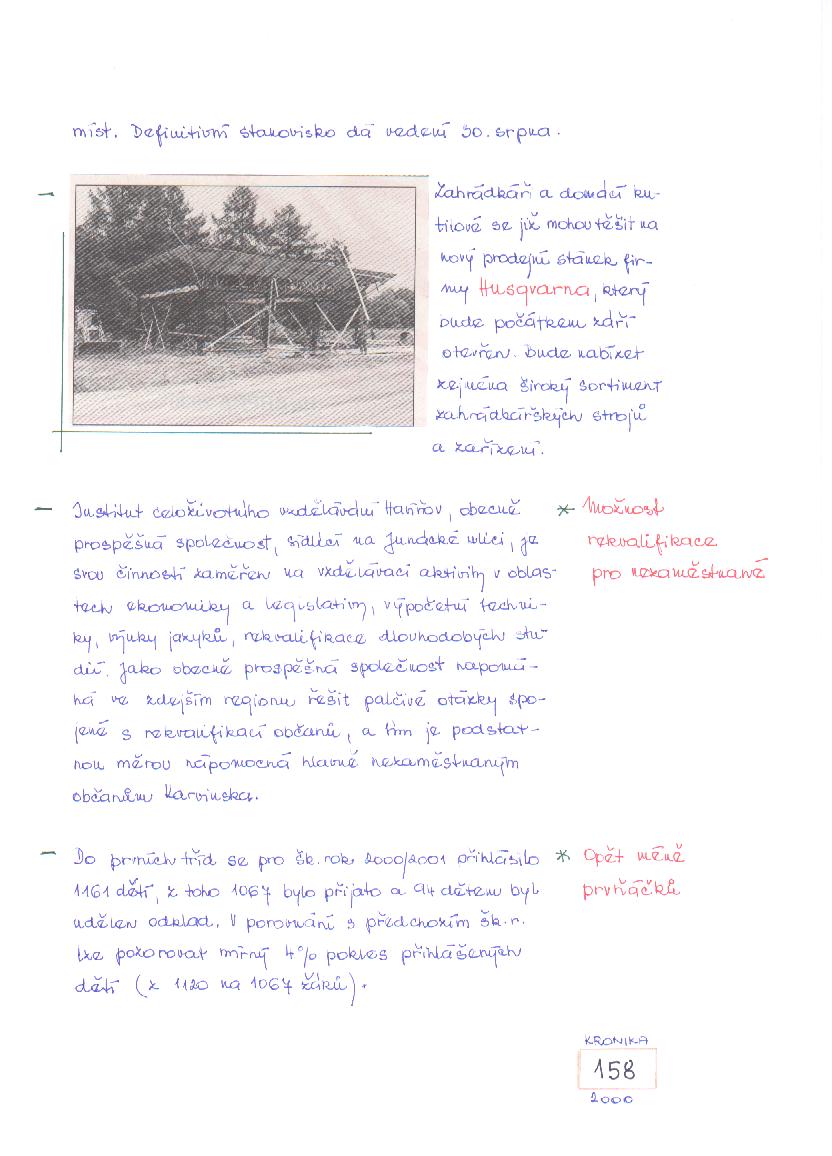 míst. Definitivní stanovisko dá vedení 30. srpna.
- Zahrádkáři a domácí ku-
tilové se již mohou těšit na
nový prodejní stánek fir-
my Husqvarna, který
bude počátkem září
otevřen. Bude nabízet
zejména široký sortiment
zahrádkářských strojů
a zařízení.
- Institut celoživotního vzdělávání Havířov, obecně
* Možnost
prospěšná společnost, sídlící na Junácké ulici, je
rekvalifikace
svou činností zaměřen na vzdělávací aktivity v oblas-
pro nezaměstnané
tech ekonomiky a legislativy, výpočetní techni-
ky, výuky jazyků, rekvalifikace dlouhodobých stu-
dií. Jako obecně prospěšná společnost napomá-
há ve zdejším regionu řešit palčivé otázky spo-
jené s rekvalifikací občanů, a tím je podstat-
nou měrou nápomocná hlavně nezaměstnaným
občanům Karvinska.
- Do prvních tříd se pro šk. rok 2000/2001 přihlásilo
* Opět méně
1161 dětí, z toho 1067 bylo přijato a 94 dětem byl
prvňáčků
udělen odklad. V porovnání s předchozím šk. r.
lze pozorovat mírný 4% pokles přihlášených
dětí (z 1120 na 1067 žáků).
KRONIKA
158
2000